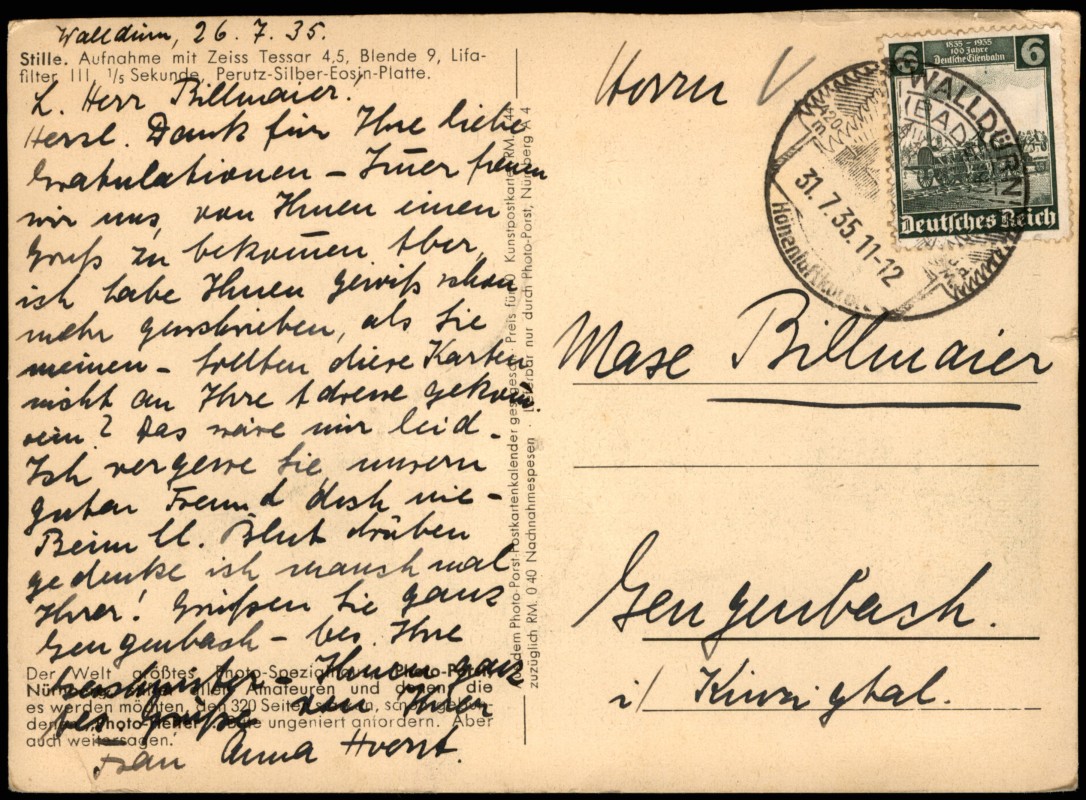 Walldürn, 26.7.35.
Stille. Aufnahme mit Zeiss Tessar 4,5, Blende 9, Lifa-
filter III, 1/5 Sekunde, Perutz-Silber-Eosin-Platte.
L. Herr Billmaier.
Herzl. Dank für Ihre liebe
Gratulationen – Im̄er freuen
wir uns, von Ihnen einen
Gruß zu bekom̄en. Aber,
ich habe Ihnen gewiß schon
mehr geschrieben, als Sie
meinen – Sollten diese Karten
nicht an Ihre Adresse gekom̄en
sein? Das wäre mir leid.
Ich vergesse Sie, unsern
guten Freund doch nie –
Beim Hl. Blut drüben
gedenke ich manch mal
Ihrer! Grüßen Sie ganz
Gengenbach – bes. Ihre
Ihnen ganz
bes. Grüße von Ihrer
Frau Anna
Der Welt größtes Photo-Spezial
Nürnberg
allen Amateuren und denen, die
es werden möchten, den 320 Seiten
ungeniert anfordern. Aber
auch weitersagen.
Aus dem Photo-Porst-Postkartenkalender ges. gesch. · Preis für 10 Kunstpostkarten RM. 1.44
zuzüglich RM. 0.40 Nachnahmespesen · Lieferbar nur durch Photo-Porst, Nürnberg A 4
Herrn
6 1835 – 1935 6
100 Jahre
Deutsche Eisenbahn
Deutsches Reich
WALLDÜRN
(BADEN)
420
m.
31.7.35.11-12
Höhenluftkurort
Mase Billmaier
Gengenbach.
i/ Kinzigtal.